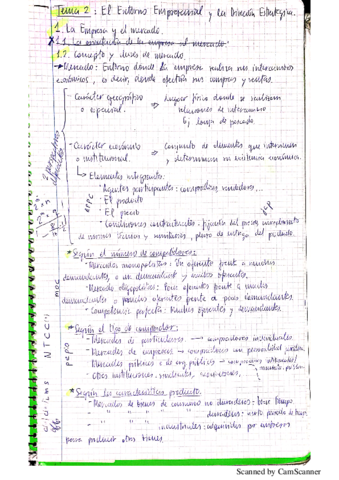 Tema 2: El Entorno Empresarial y la Dirección Estratégica.
1. La Empresa y el mercado.
1.1. La orientación de la empresa al mercado.
1.2. Concepto y clases de mercado.
Mercado: Entorno donde la empresa realiza sus intercambios
económicos, es decir, donde efectúa sus compras y ventas.
- Carácter geográfico
o espacial.
⇒ Lugar físico donde se realizan
relaciones de intercambio
Ej: lonja de pescado
- Carácter económico
o institucional.
⇒ Conjunto de elementos que intervienen
y determinan su existencia económica.
Elementos integrantes:
- Agentes participantes: compradores, vendedores...
- El producto
- El precio
- Condiciones contractuales: fijación del precio, cumplimiento
de normas técnicas y sanitarias, plazo de entrega del producto.
Según el número de competidores:
- Mercados monopolísticos: Un oferente frente a muchos
demandantes, o un demandante y muchos oferentes.
- Mercado oligopolístico: Pocos oferentes frente a muchos
demandantes o muchos oferentes frente a pocos demandantes.
- Competencia perfecta: Muchos oferentes y demandantes.
Según el tipo de comprador:
- Mercados de particulares → compradores individuales.
- Mercados de empresas → compradores con personalidad jurídica.
- Mercados públicos o de org públicos →
- Otras instituciones,
Según las características producto.
- Mercados de bienes de consumo no duraderos:
" " " " duraderos:
" " industriales: adquiridos por empresas
para producir otros bienes.
Scanned by CamScanner